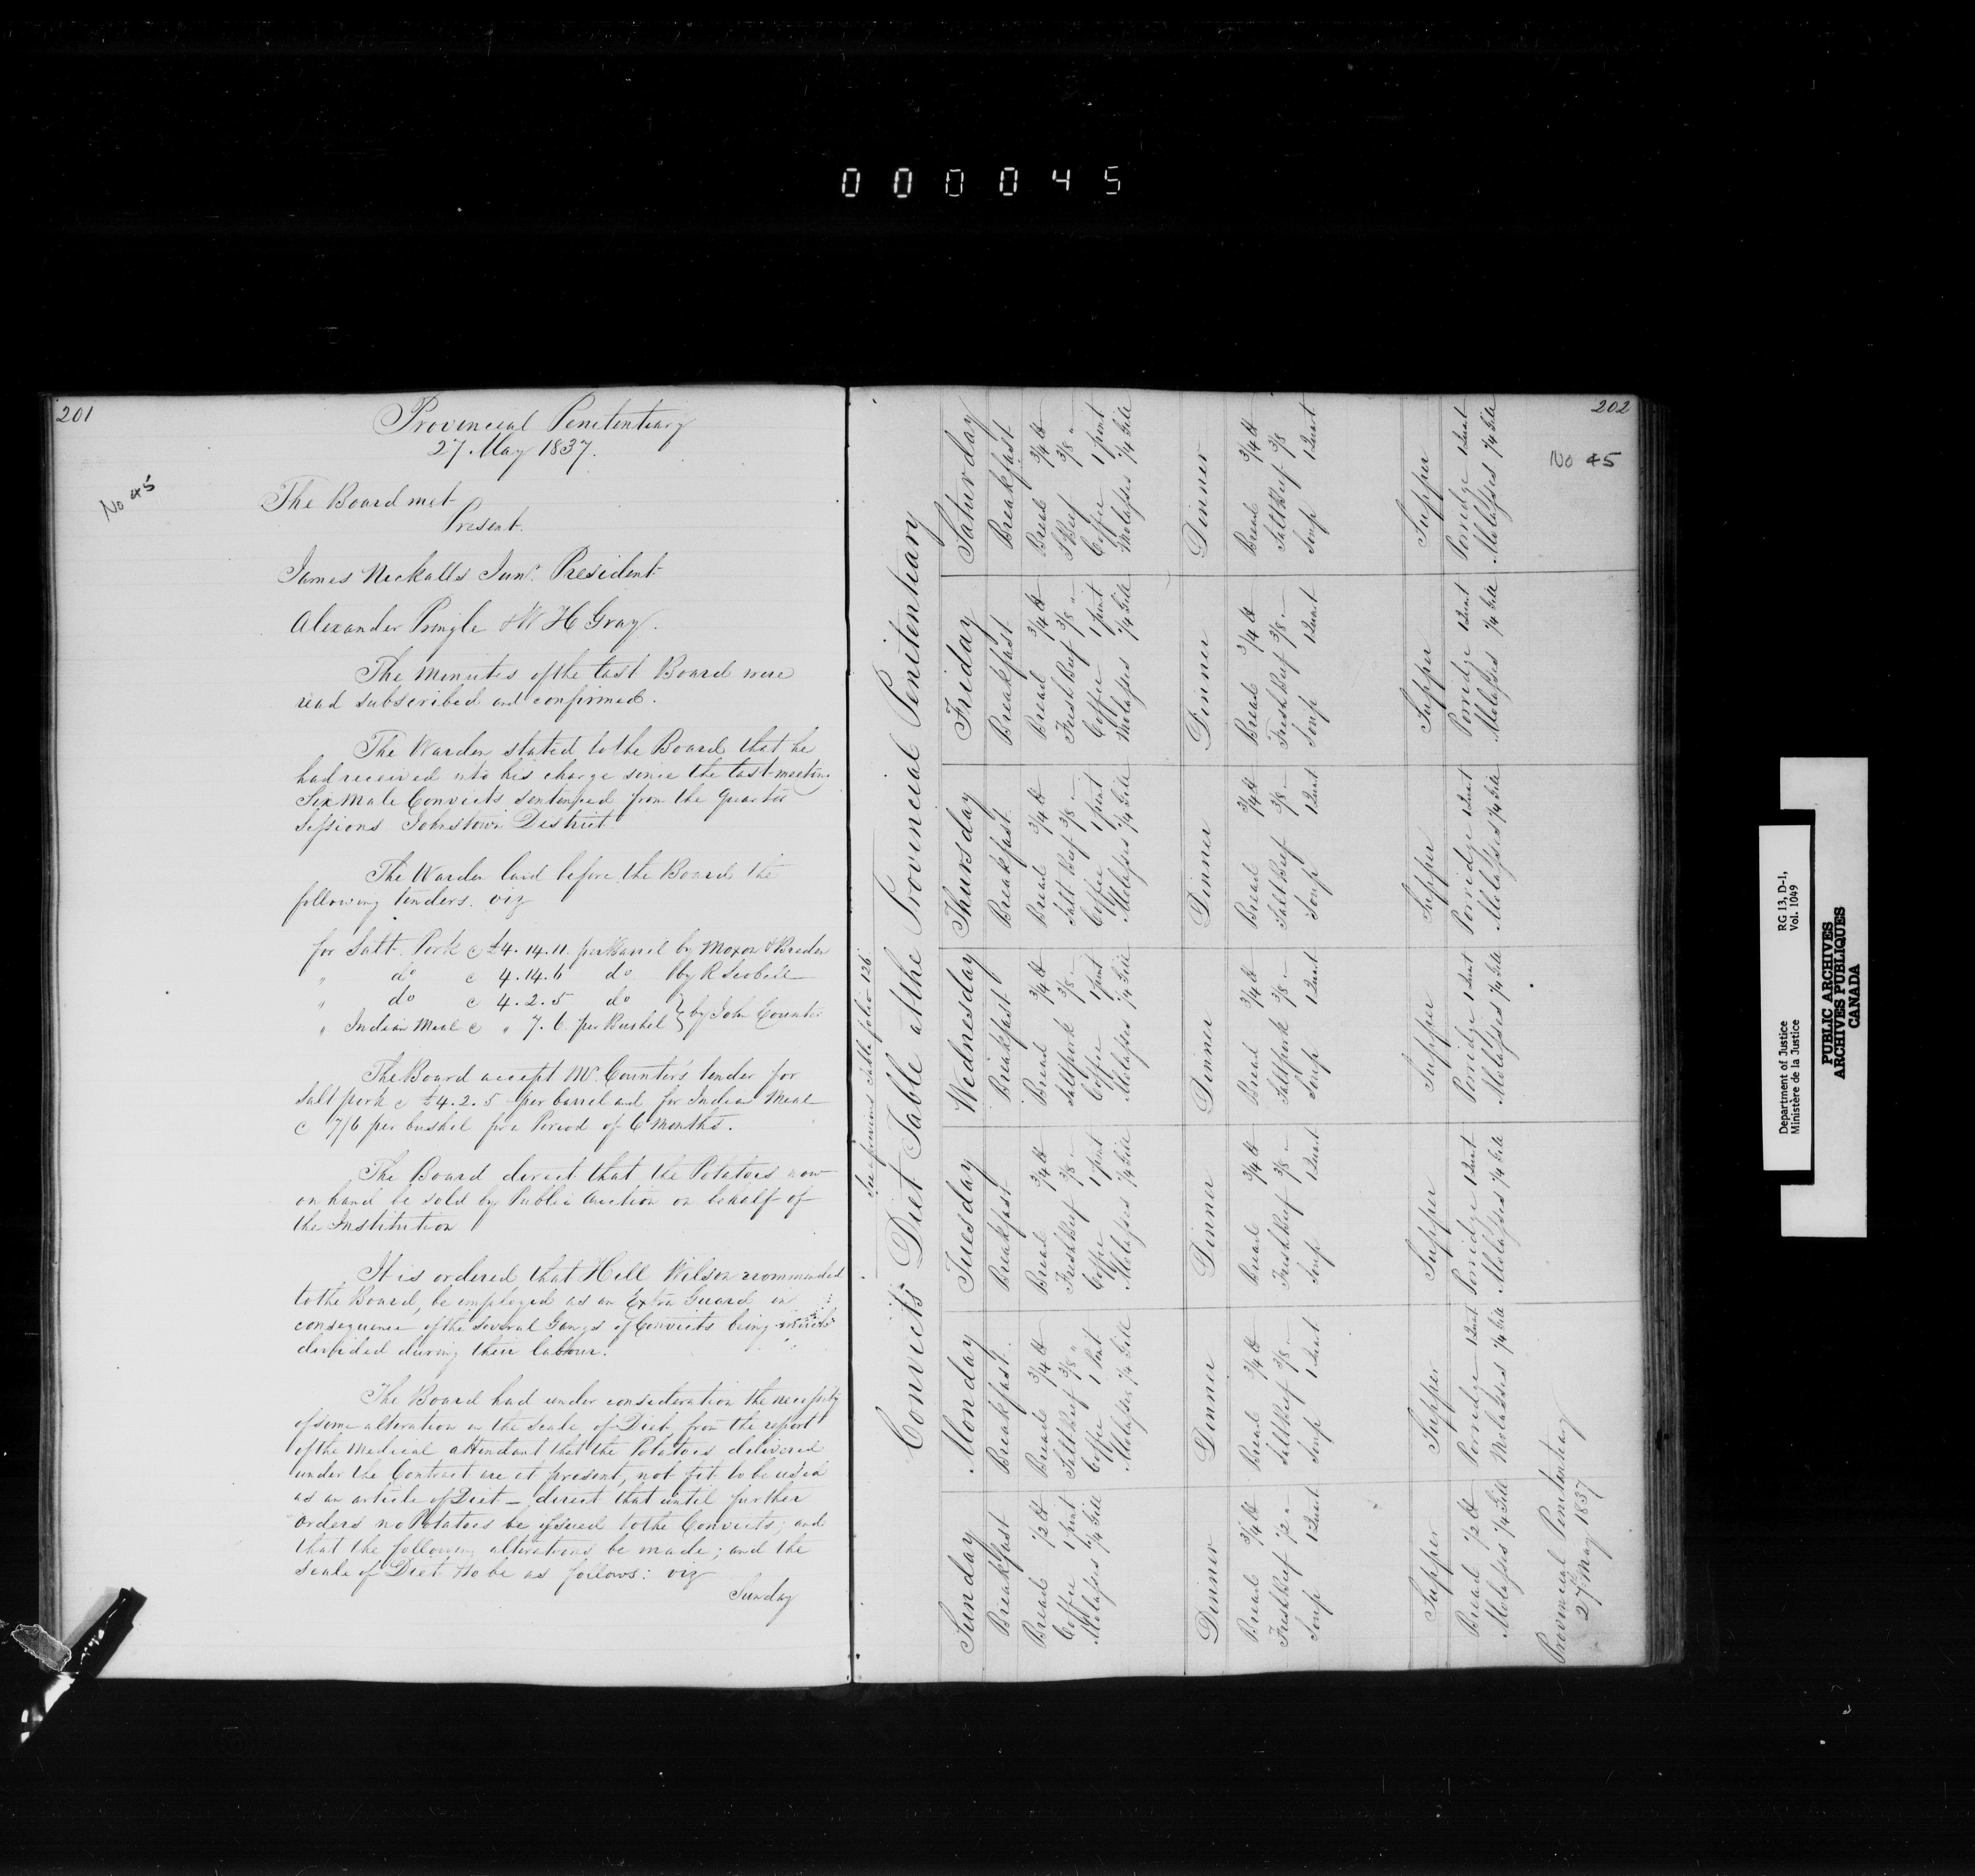 000045
201
Provincial Penitentiary
27. May 1837.
No 45
The Board met
Present.
James Nickalls Junr. President
Alexander Pringle & W H Gray.
The Minutes of the last Board were
read subscribed and confirmed.
The Warden stated to the Board that he
had received into his charge since the last meeting
Six Male Convicts sentenced from the Quarter
Sessions Johnstown District
The Warden laid before the Board the
following tenders. viz
for Salt Pork @ £4.14.11. per Barrel by Moxon &
" do @ 4.14.6 do by R Scobell
" do @ 4.2.5 do } by John Counter
" Indian Meal @ " 7.6. per Bushel
The Board accept Mr. Counter's tender for
Salt pork @ £4.2.5 per barrel and for Indian Meal
@ 7/6 per bushel for a Period of 6 Months.
The Board direct that the Potatoes now
on hand be sold by Public Auction on behalf of
the Institution
It is ordered that Hill Wilson recommended
to the Board, be employed as an Extra Guard in
consequence of the several Gangs of Convicts being much
divided during their labour.
The Board had under consideration the necessity
of some alteration in the Scale of Diet, from the report
of the Medical attendant that the Potatoes delivered
under the Contract are at present, not fit to be used
as an article of Diet – direct that until further
orders no Potatoes be issued to the Convicts; and
that the following alterations be made; and the
Scale of Diet to be as follows: viz
Sunday
202
No 45
See a previous table folio 126
Convicts Diet Table at the Provincial Penitentiary
Sunday
Breakfast
Bread ½ lb
Coffee 1 pint
Molasses ¼ Gill
Dinner
Bread ¾ lb
Fresh Beef ½ "
Soup 1 Quart
Supper
Bread ½ lb
Molasses ¼ Gill
Monday
Breakfast
Bread ¾ lb
Salt Beef 3/8 "
Coffee 1 Pint
Molasses ¼ Gill
Dinner
Bread ¾ lb
Salt Beef 3/8 –
Soup 1 Quart
Supper
Porridge 1 Quart
Molasses ¼ Gill
Tuesday
Breakfast
Bread ¾ lb
Fresh Beef 3/8 –
Coffee 1 pint
Molasses ¼ Gill
Dinner
Bread ¾ lb
Fresh Beef 3/8 –
Soup 1 Quart
Supper
Porridge 1 Quart
Molasses ¼ Gill
Wednesday
Breakfast
Bread ¾ lb
Salt pork 3/8 –
Coffee 1 pint
Molasses ¼ Gill
Dinner
Bread ¾ lb
Salt pork 3/8 –
Soup 1 Quart
Supper
Porridge 1 Quart
Molasses ¼ Gill
Thursday
Breakfast
Bread ¾ lb
Salt Beef 3/8 –
Coffee 1 pint
Molasses ¼ Gill
Dinner
Bread ¾ lb
Salt Beef 3/8 –
Soup 1 Quart
Supper
Porridge 1 Quart
Molasses ¼ Gill
Friday
Breakfast
Bread ¾ lb
Fresh Beef 3/8 "
Coffee 1 pint
Molasses ¼ Gill
Dinner
Bread ¾ lb
Fresh Beef 3/8 –
Soup 1 Quart
Supper
Porridge 1 Quart
Molasses ¼ Gill
Saturday
Breakfast
Bread ¾ lb
S Beef 3/8 "
Coffee 1 pint
Molasses ¼ Gill
Dinner
Bread ¾ lb
Salt Beef 3/8
Soup 1 Quart
Supper
Porridge 1 Quart
Molasses ¼ Gill
Provincial Penitentiary
27th May 1837
Department of Justice
Ministère de la Justice
RG 13, D-1,
Vol. 1049
PUBLIC ARCHIVES
ARCHIVES PUBLIQUES
CANADA